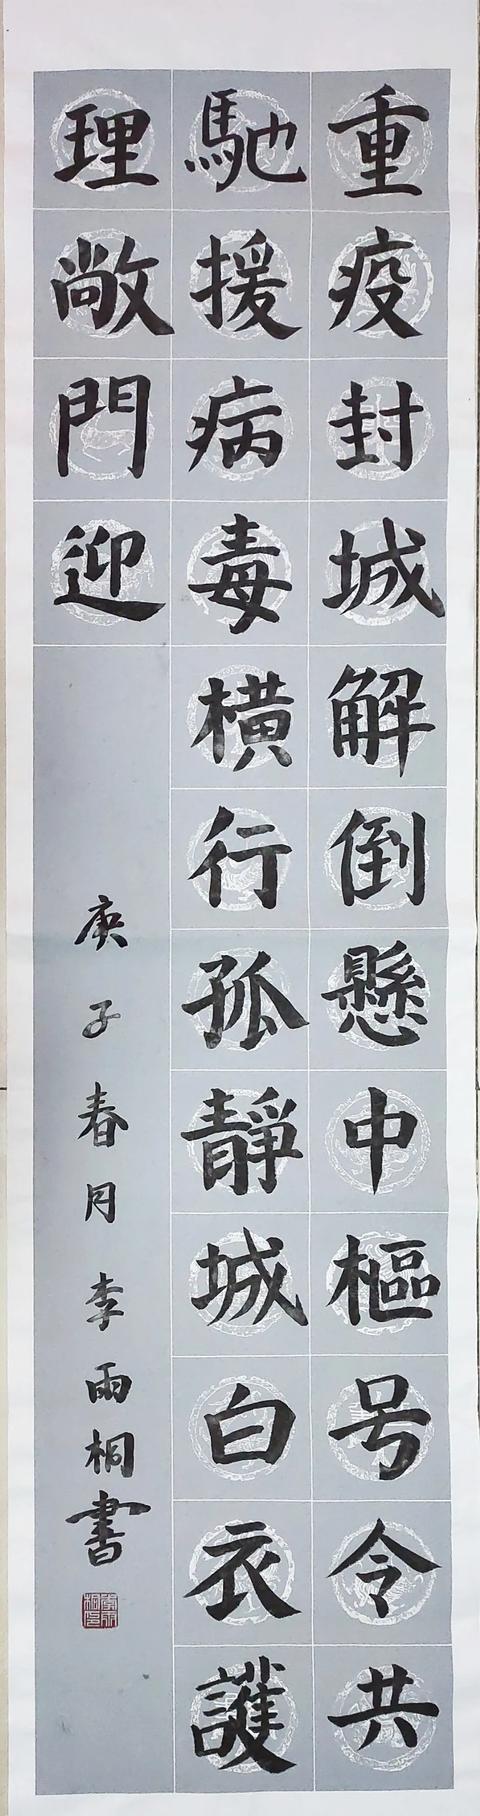 重疫封城解倒懸中樞号令共
馳援病毒橫行孤靜城白衣護
理敞門迎
庚子春月李雨桐書